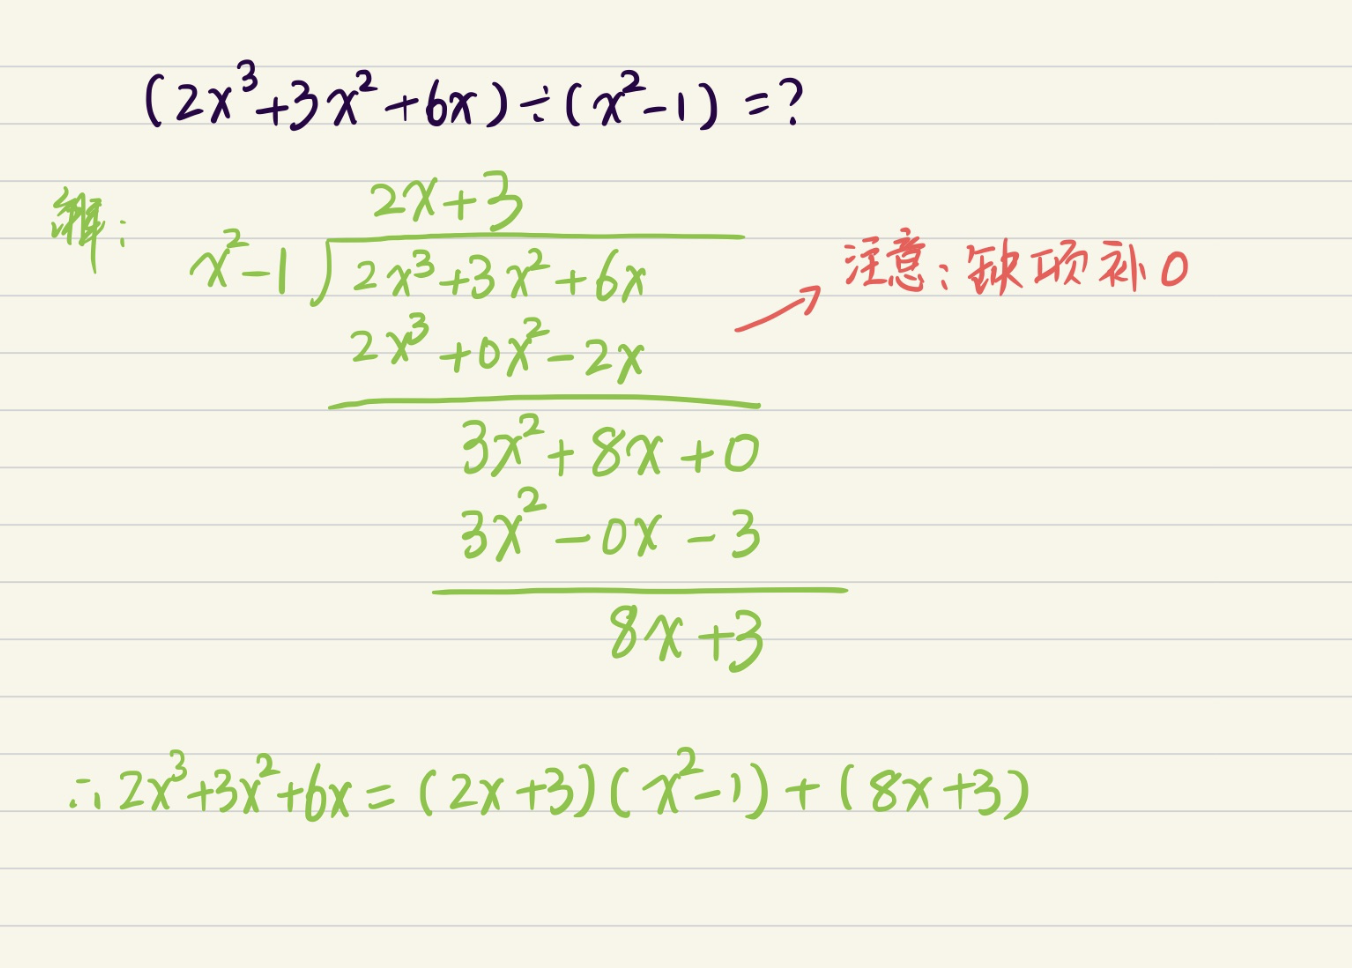 (2x³+3x²+6x)÷(x²-1)=?
解:
2x+3
x²-1 2x³+3x²+6x
注意:缺项补0
2x³+0x²-2x
3x²+8x+0
3x²-0x-3
8x+3
∴2x³+3x²+6x=(2x+3)(x²-1)+(8x+3)